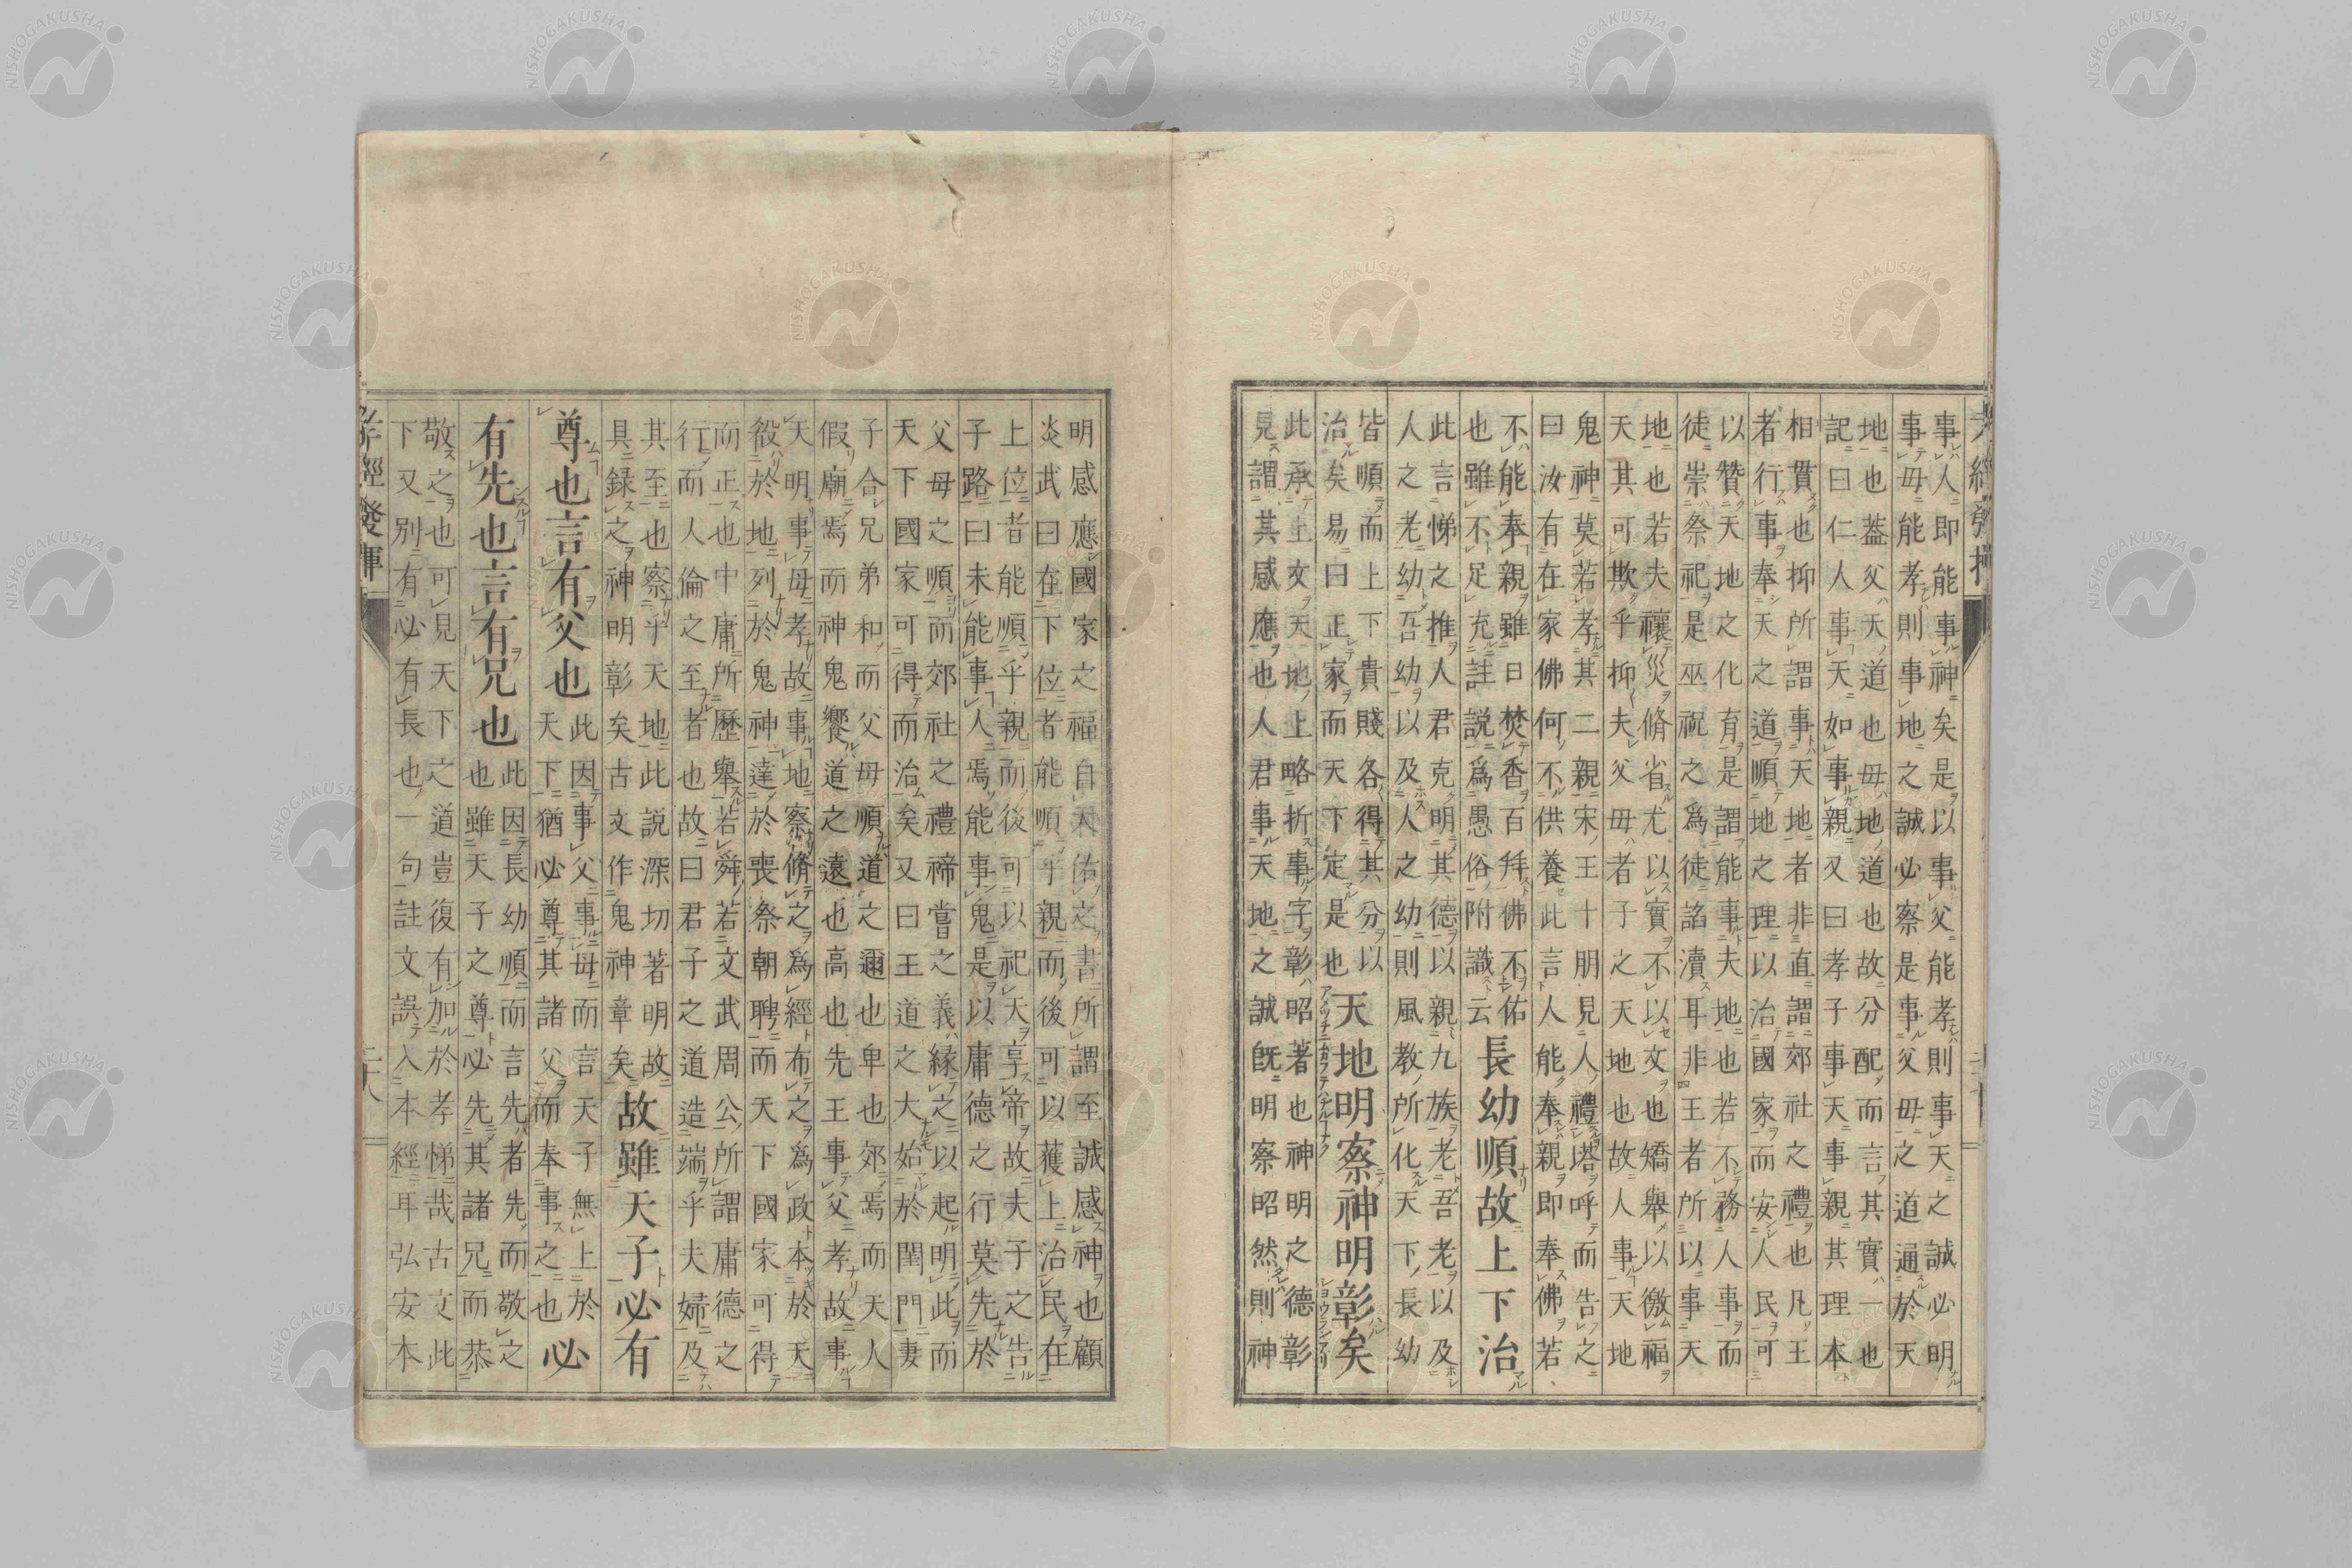 事人即能事神矣是以事父能孝則事天之誠必明
事母能孝則事地之誠必察是事父母之道通於天
地也蓋父天道也母地道也故分配而言其實一也
記曰仁人事天如事親又曰孝子事天事親其理本
相貫也抑所謂事天地者非直謂郊社之禮也凡王
者行事奉天之道順地之理以治國家而安人民可
以贊天地之化育是謂能事夫地也若不務人事而
徒崇祭祀是巫祝之為徒諂瀆耳非王者所以事天
地也若夫禳災脩省尤以實不以文也矯舉以徼福
天其可欺乎抑夫父母者子之天地也故人事天地
鬼神莫若孝其二親宋王十朋見人禮塔呼而告之
曰汝有在家佛何不供養此言人能奉親即奉佛若
不能奉親雖日焚香百拜佛不佑
也雖不足充註説為愚俗附識云
長幼順故上下治
此言悌之推人君克明其德以親九族老吾老以及
人之老幼吾幼以及人之幼則風教所化天下長幼
皆順而上下貴賤各得其分以
治矣易曰正家而天下定是也
天地明察神明彰矣
此承上文天地上略折事字彰昭著也神明之德彰
見謂其感應也人君事天地之誠旣明察昭然則神
明感應國家之福自天佑之書所謂至誠感神也顧
炎武曰在下位者能順乎親而後可以獲上治民在
上位者能順乎親而後可以祀天享帝故夫子之告
子路曰未能事人焉能事鬼是以庸德之行莫先於
父母之順而郊社之禮禘嘗之義緣之以起明此而
天下國家可得而治矣又曰王道之大始於閨門妻
子合兄弟和而父母順道之邇也卑也郊焉而天人
假廟焉而神鬼饗道之遠也高也先王事父孝故事
天明事母孝故事地察脩之為經布之為政本於天
殽於地列於鬼神達於喪祭朝聘而天下國家可得
而正也中庸所歷舉若舜若文武周公所謂庸德之
行而人倫之至者也故曰君子之道造端乎夫婦及
其至也察乎天地此説深切著明故
具録之神明彰矣古文作鬼神章矣
故雖天子必有
尊也言有父也
此因事父事母而言天子無上於
天下猶必尊其諸父而奉事之也
必
有先也言有兄也
此因長幼順而言先者先而敬之
也雖天子之尊必先其諸兄而恭
敬之也可見天下之道豈復有加於孝悌哉古文此
下又別有必有長也一句註文誤入本經耳弘安本